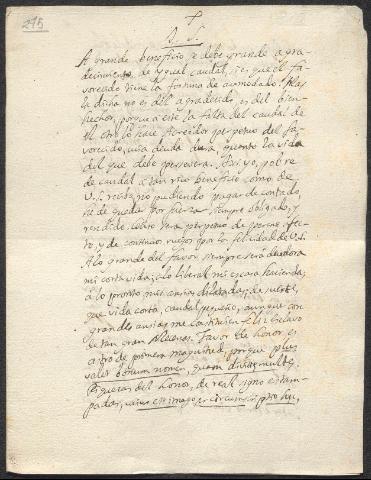 275
+
A grande beneficio se debe grande agra-
decimiento de ygual caudal, si es que el fa-
vorecido tiene la fortuna de acomodado. Mas
la dicha no es del agradecido, es del bien-
hechor, porque a este la falta del caudal de
el otro lo hace acreedor perpetuo del fa-
vorecido, cuia deuda dura, quanto la vida
del que debe persevera. Assi yo, pobre
de caudal a tan rico beneficio como de
V.S. recibo, no pudiendo pagar de contado,
he de quedar por fuerza siempre obligado, y
rendido, como una perpetuo de perene afec-
to, y de continuo ruego por la felicidad de V.S.
A lo grande del favor siempre será deudora
mi corta vida; a lo liberal mi escasa hacienda;
a lo pronto, mis ansias dilatadas; de suerte,
que vida corta, caudal pequeño, aunque con
grandes ansias me constituien feliz esclavo
de tan gran Mecenas. Favor de honor es
astro de primera magnitud, porque plus
valet bonum nomen, quam divitiae multae.
Riquezas del honor, de real signo estam-
padas, cuius est imago, et circumscriptio hic,